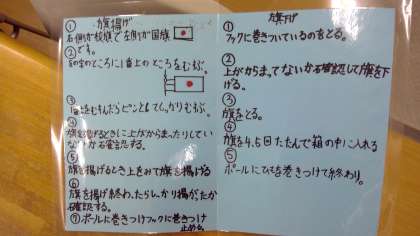 旗揚げ
①
右側が校旗で左側が国旗
です。
②
のところに1番上のところをむすぶ。
③
1番上をむすんだらピンとしてしっかりむすぶ。
④
旗を揚げるときに上がからまったりしてい
ないか石確認する。
⑤
旗を揚げるとき上をみて旗を揚げる
⑥
旗を揚げ終わったらしっかり揚がったか
確認する。
⑦ポールに巻きつけフックに巻きつけ
止める。
旗下げ
①
フックに巻きついているのをとる。
②
上がからまってないか石確認して旗を下
げる。
③
旗をとる。
④
旗を4.5回たたんで箱の中に入れる
⑤
ポールにひもを巻きつけて終わり。